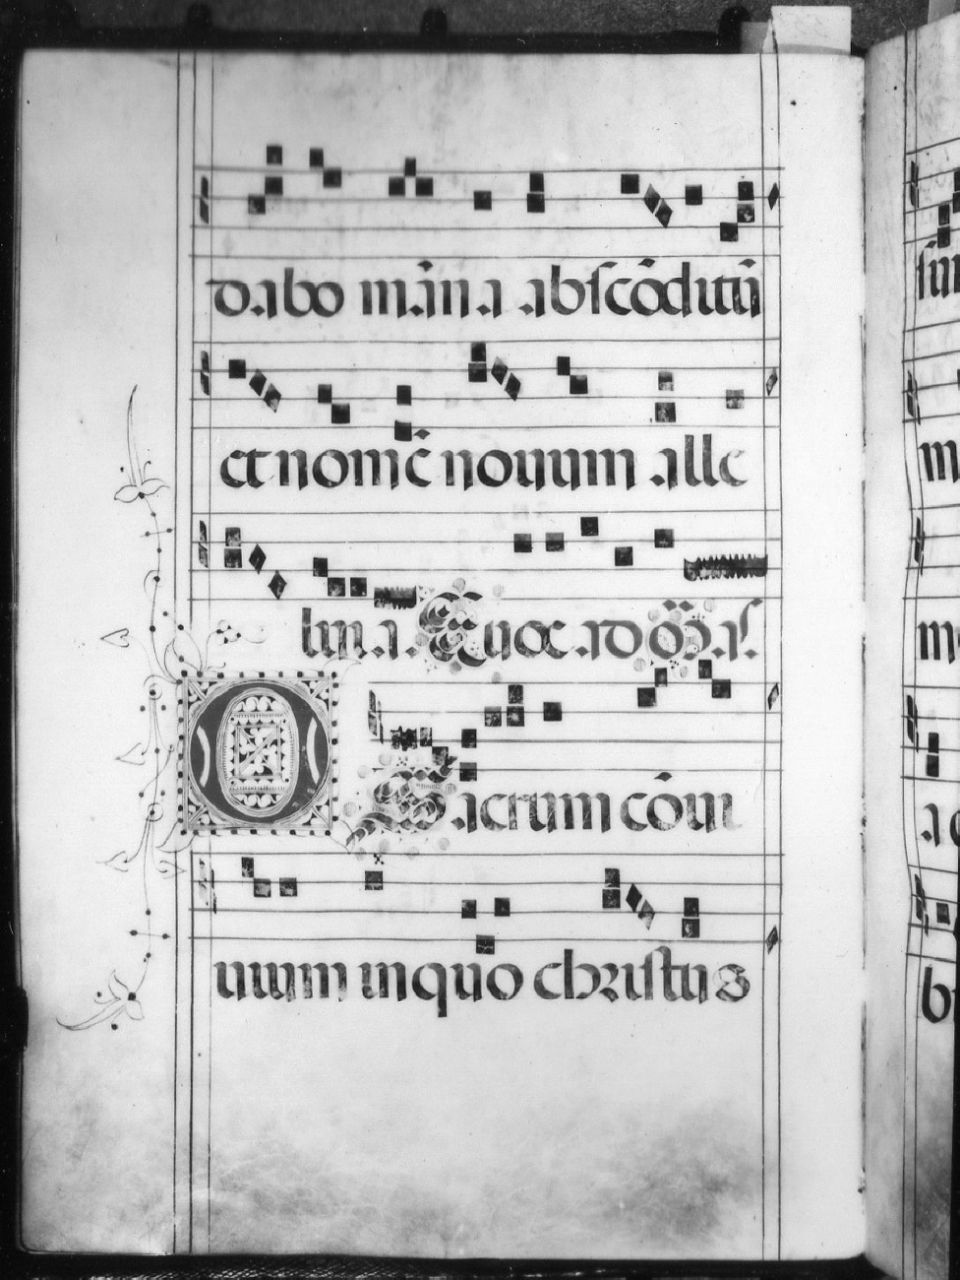 dabo mãna abscõditũ
et nomẽ nouum alle
luya. Euoe ad õra s.
O Sacrum cõui
uium in quo christus